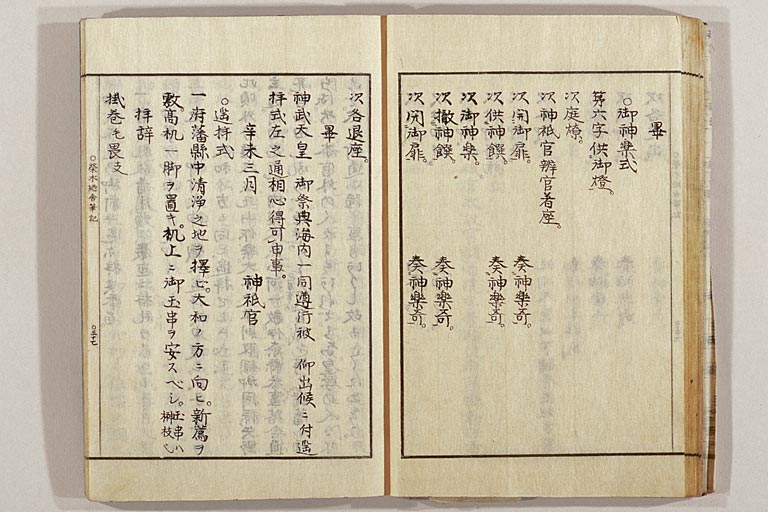 畢
○御神樂式
第六字供御燈。
次庭燎。
次神祇官辨官着座。
次開御扉。 奏神樂奇。
次供神饌。 奏神樂奇。
次御神樂。
次撤神饌。 奏神樂奇。
次閇御扉。 奏神樂奇。
次各退座。
畢
神武天皇 御祭典海内一同遵行被 仰出候ニ付遙
拝式左之通相心得可申事。
辛未三月 神祇官
○遙拝式
一府藩縣中清浄之地ヲ擇ビ。大和ノ方ニ向ヒ。新薦ヲ
敷。高机一脚ヲ置キ。机上ニ御玉串ヲ安スベシ。玉串ハ榊枝也
拝辞
掛巻毛畏支